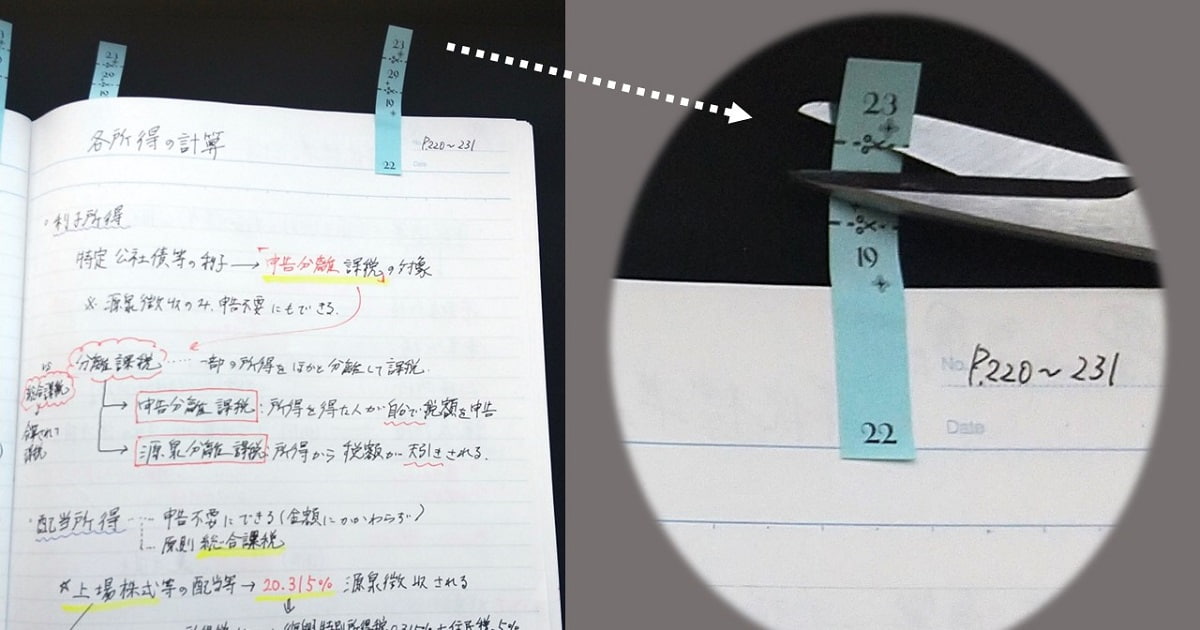 23
29
22
各所得の計算
P.220～231
Date
・利子所得
特定公社債等の利子→「申告分離課税」の対象
※源泉徴収のみ、申告不要にもできる。
分離課税……一部の所得をほかと分離して課税。
vs
総合課税
→申告分離課税：所得を得た人が自分で税額を申告
→源泉分離課税：所得から税額が天引きされる。
課税
・配当所得……申告不要にできる(金額にかかわらず)
原則総合課税
☆上場株式等の配当等→20.315% 源泉徴収される
23
19
No.
P.220～231
Date
22